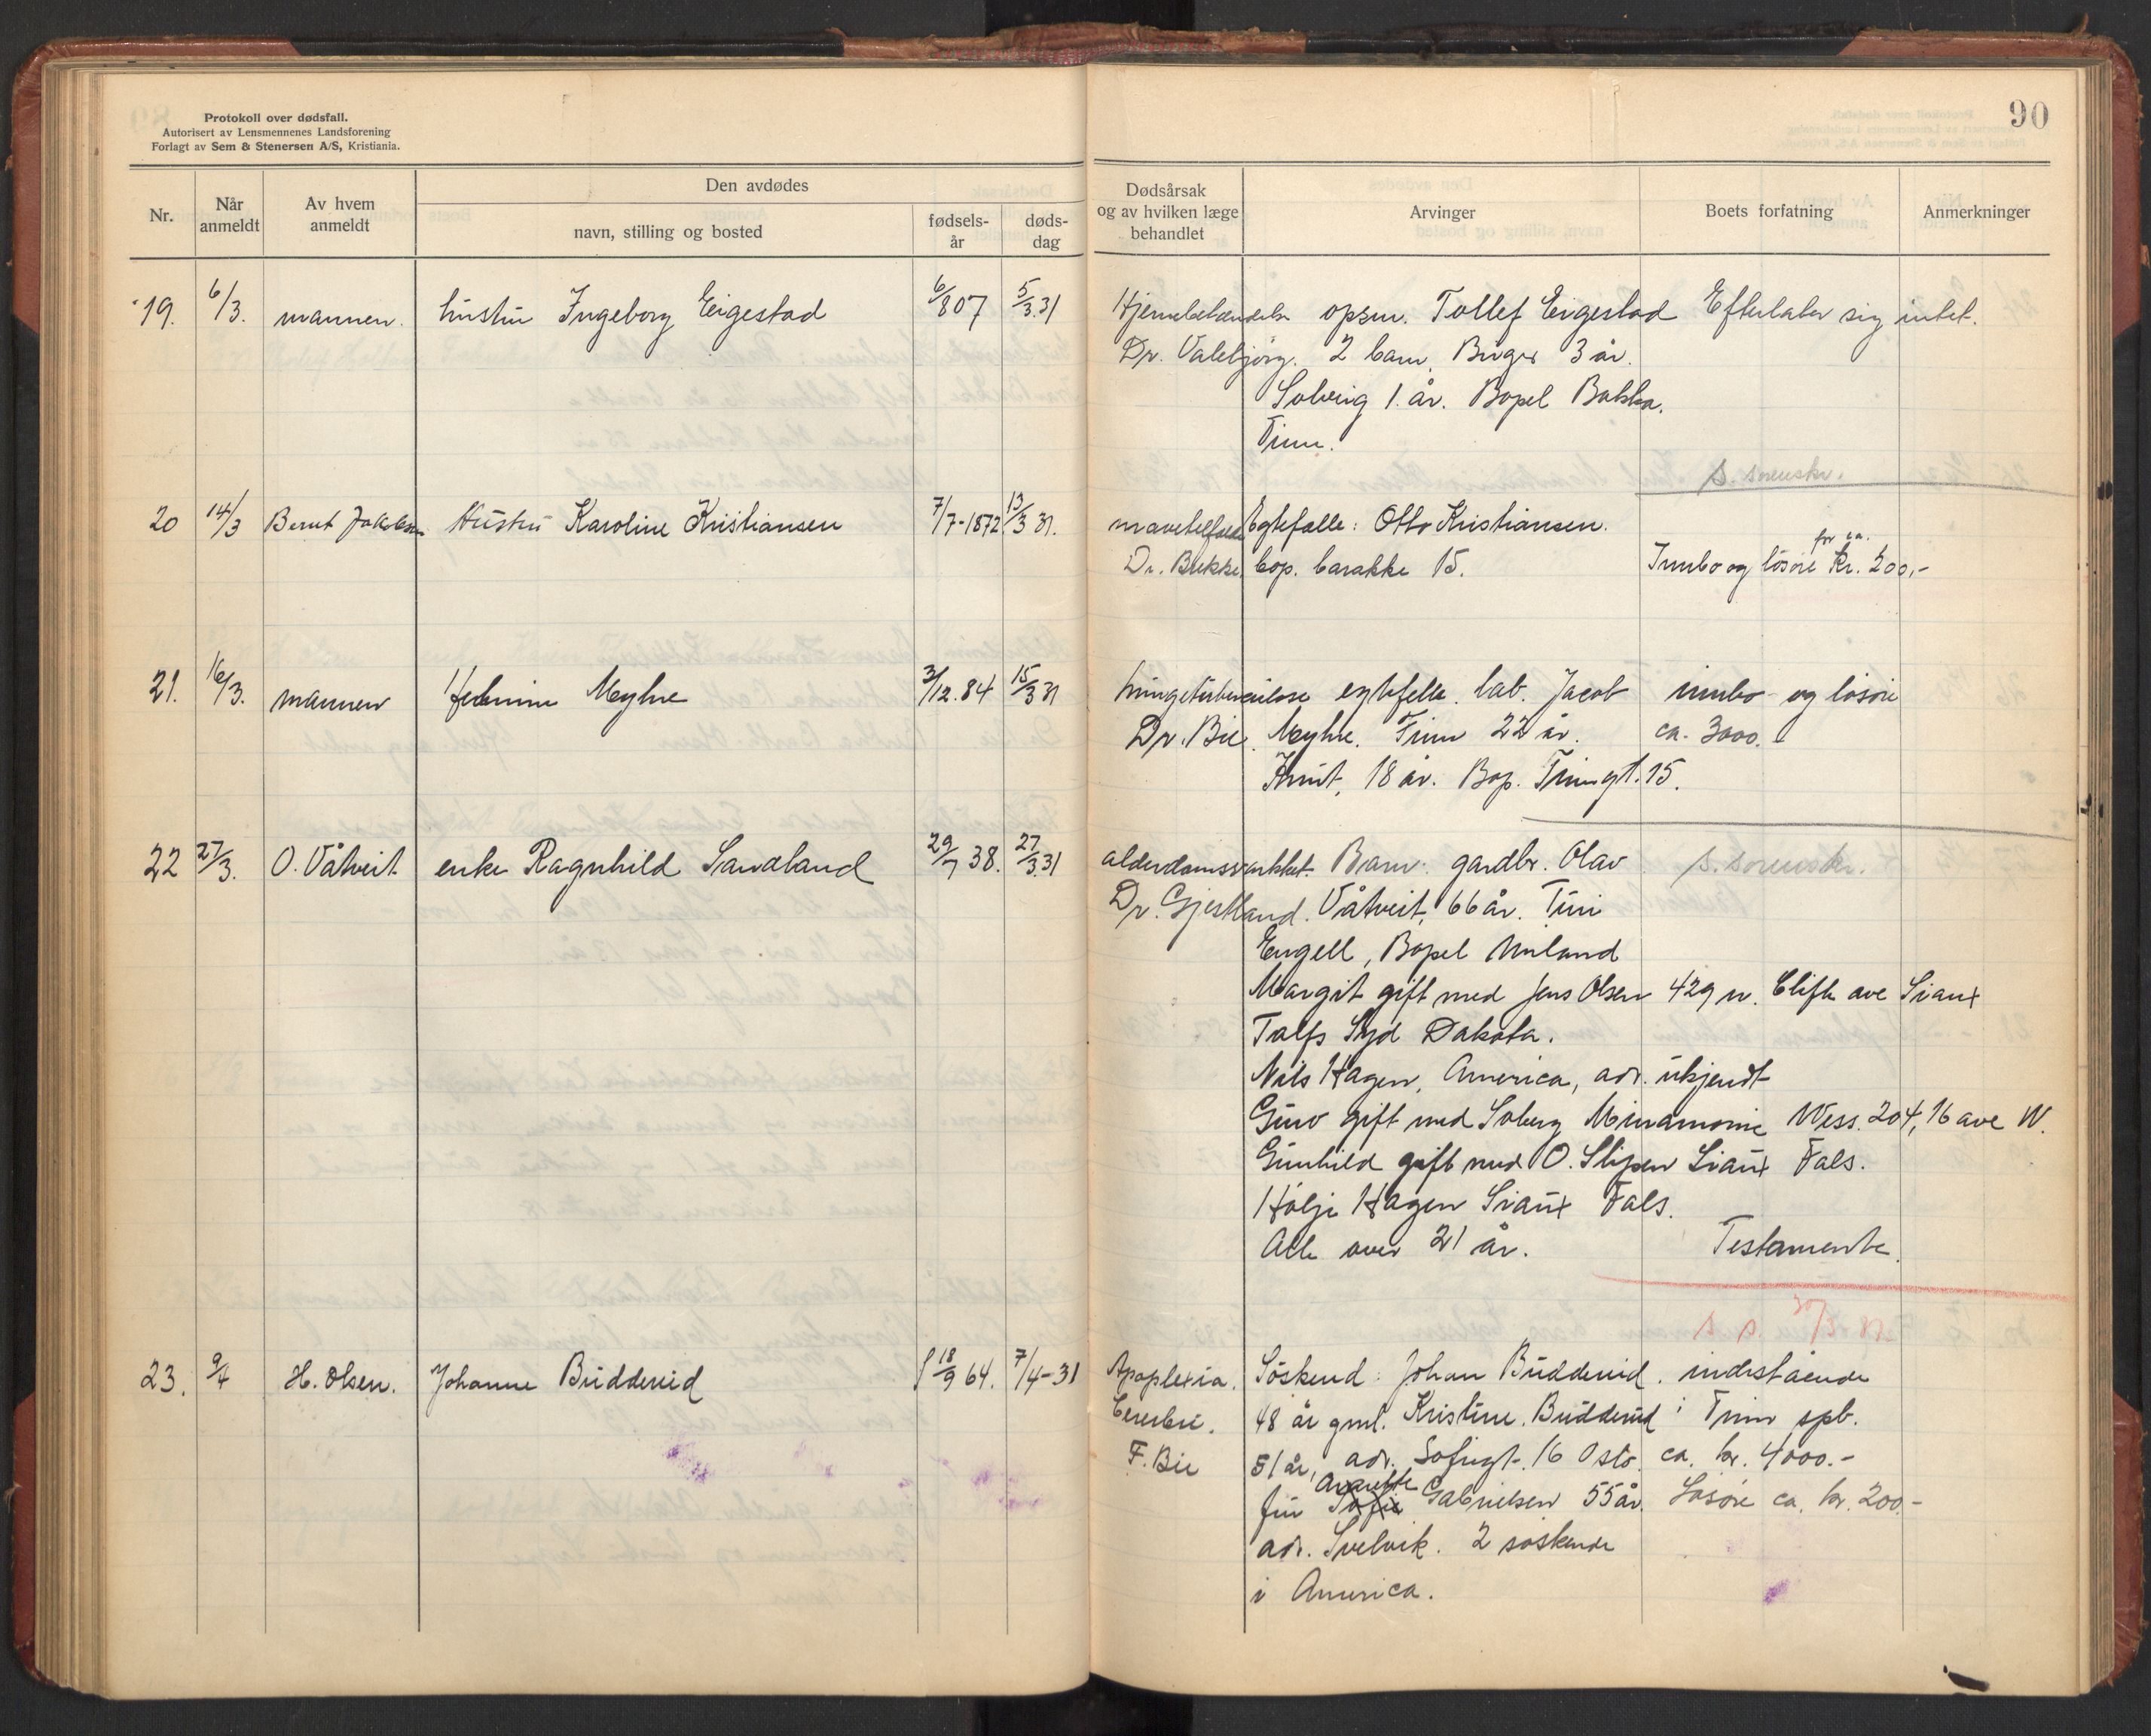 Protokoll over dødsfall.
Autorisert av Lensmennenes Landsforening
Forlagt av Sem & Stenersen A/S, Kristiania.
90
Nr.
Når anmeldt
Av hvem anmeldt
Den avdødes
navn, stilling og bosted
fødsels-år
døds-dag
Dødsårsak og av hvilken læge behandlet
Arvinger
Boets forfatning
Anmerkninger
19. 6/3. mannen. hustru Ingeborg Eigestad 6/8 07 5/3.31
Hjernebetændelse opsm. Tollef Eigestad Efterlater sig intet.
Dr. Valebjörg. 2 barn, Birger 3 år.
Solveig 1. år. Bopel Bakka.
Tinn.
s. sorenskr.
20 14/3 Bernt Jakobsen Hustru Karoline Kristiansen 7/7-1872. 13/3 31.
Egtefelle: Otto Kristiansen.
for ca.
Dr. Bekke. bop. barakke 15. Innbo og lösöre kr. 200,-
21. 16/3. mannen Myhre 3/12.84 15/3 31
lungetuberculose egtefelle. lab. Jacob innbo og lösöre
Dr. Bie. Myhre. Finn 22 år. ca. 3000.-
Knut, 18 år. Bop. Tinngt. 15.
22 27/3. O. Våtveit enke Ragnhild Sandland 29/7 38. 27/3.31
alderdomssvakhet. Barn: gardbr. Olav s. sorenskr.
Dr. Gjestland. Våtveit, 66 år. Turi
Engell, Bopel Miland
Margit gift med Jens Olsen 429 n. Clifte ave Siaux
Talfs Syd Dakota.
Nils Hagen, America, adr. ukjendt
Guro gift med Soberg Minamonie Wess. 204, 16 ave W.
Gunhild gift med O. Slipen Siaux Fals.
Hölje Hagen Siaux Fals.
Alle over 21 år. Testamente.
s. s. 30/3-31
23. 9/4 H. Olsen. Johanne Budderud f 18/9 64. 7/4-31
Apoplexia. Söskend: Johan Budderud. indestående
Cerebri. 48 år gml. Kristine Budderud i Tinn spb.
F. Bie 51 år, adr. Sofiegt. 16 Oslo. ca. kr. 4000.-
fru Gabrielsen 55 år. Lösöre ca. kr. 200.-
adr. Svelvik. 2 söskende
i America.